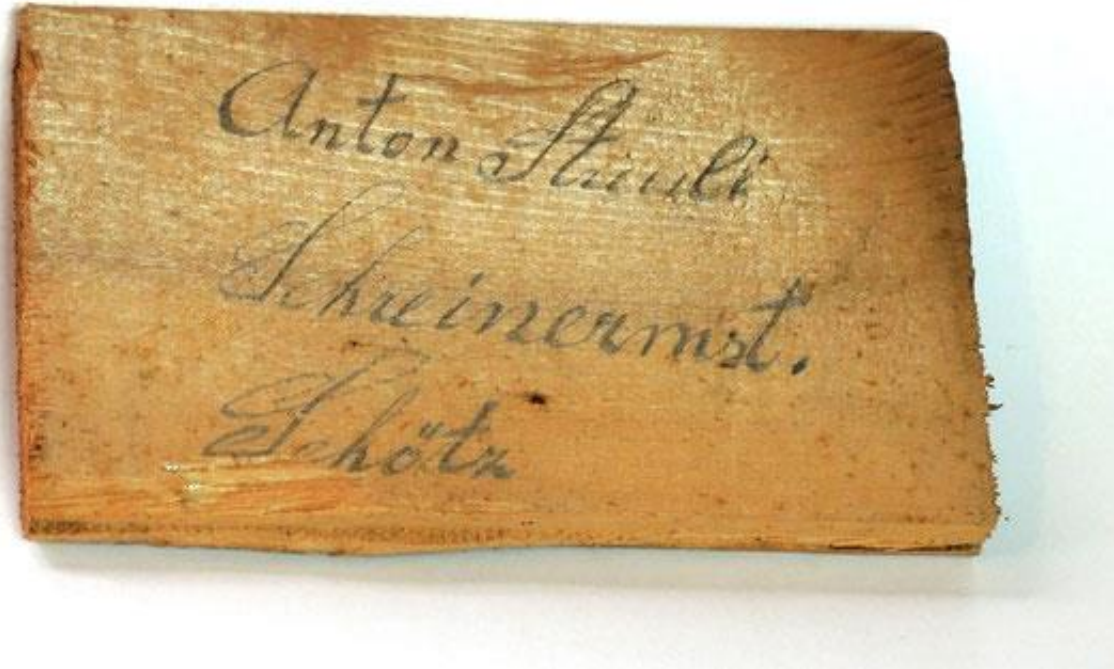 Anton Stäuli
Schreinermst.
Schötz